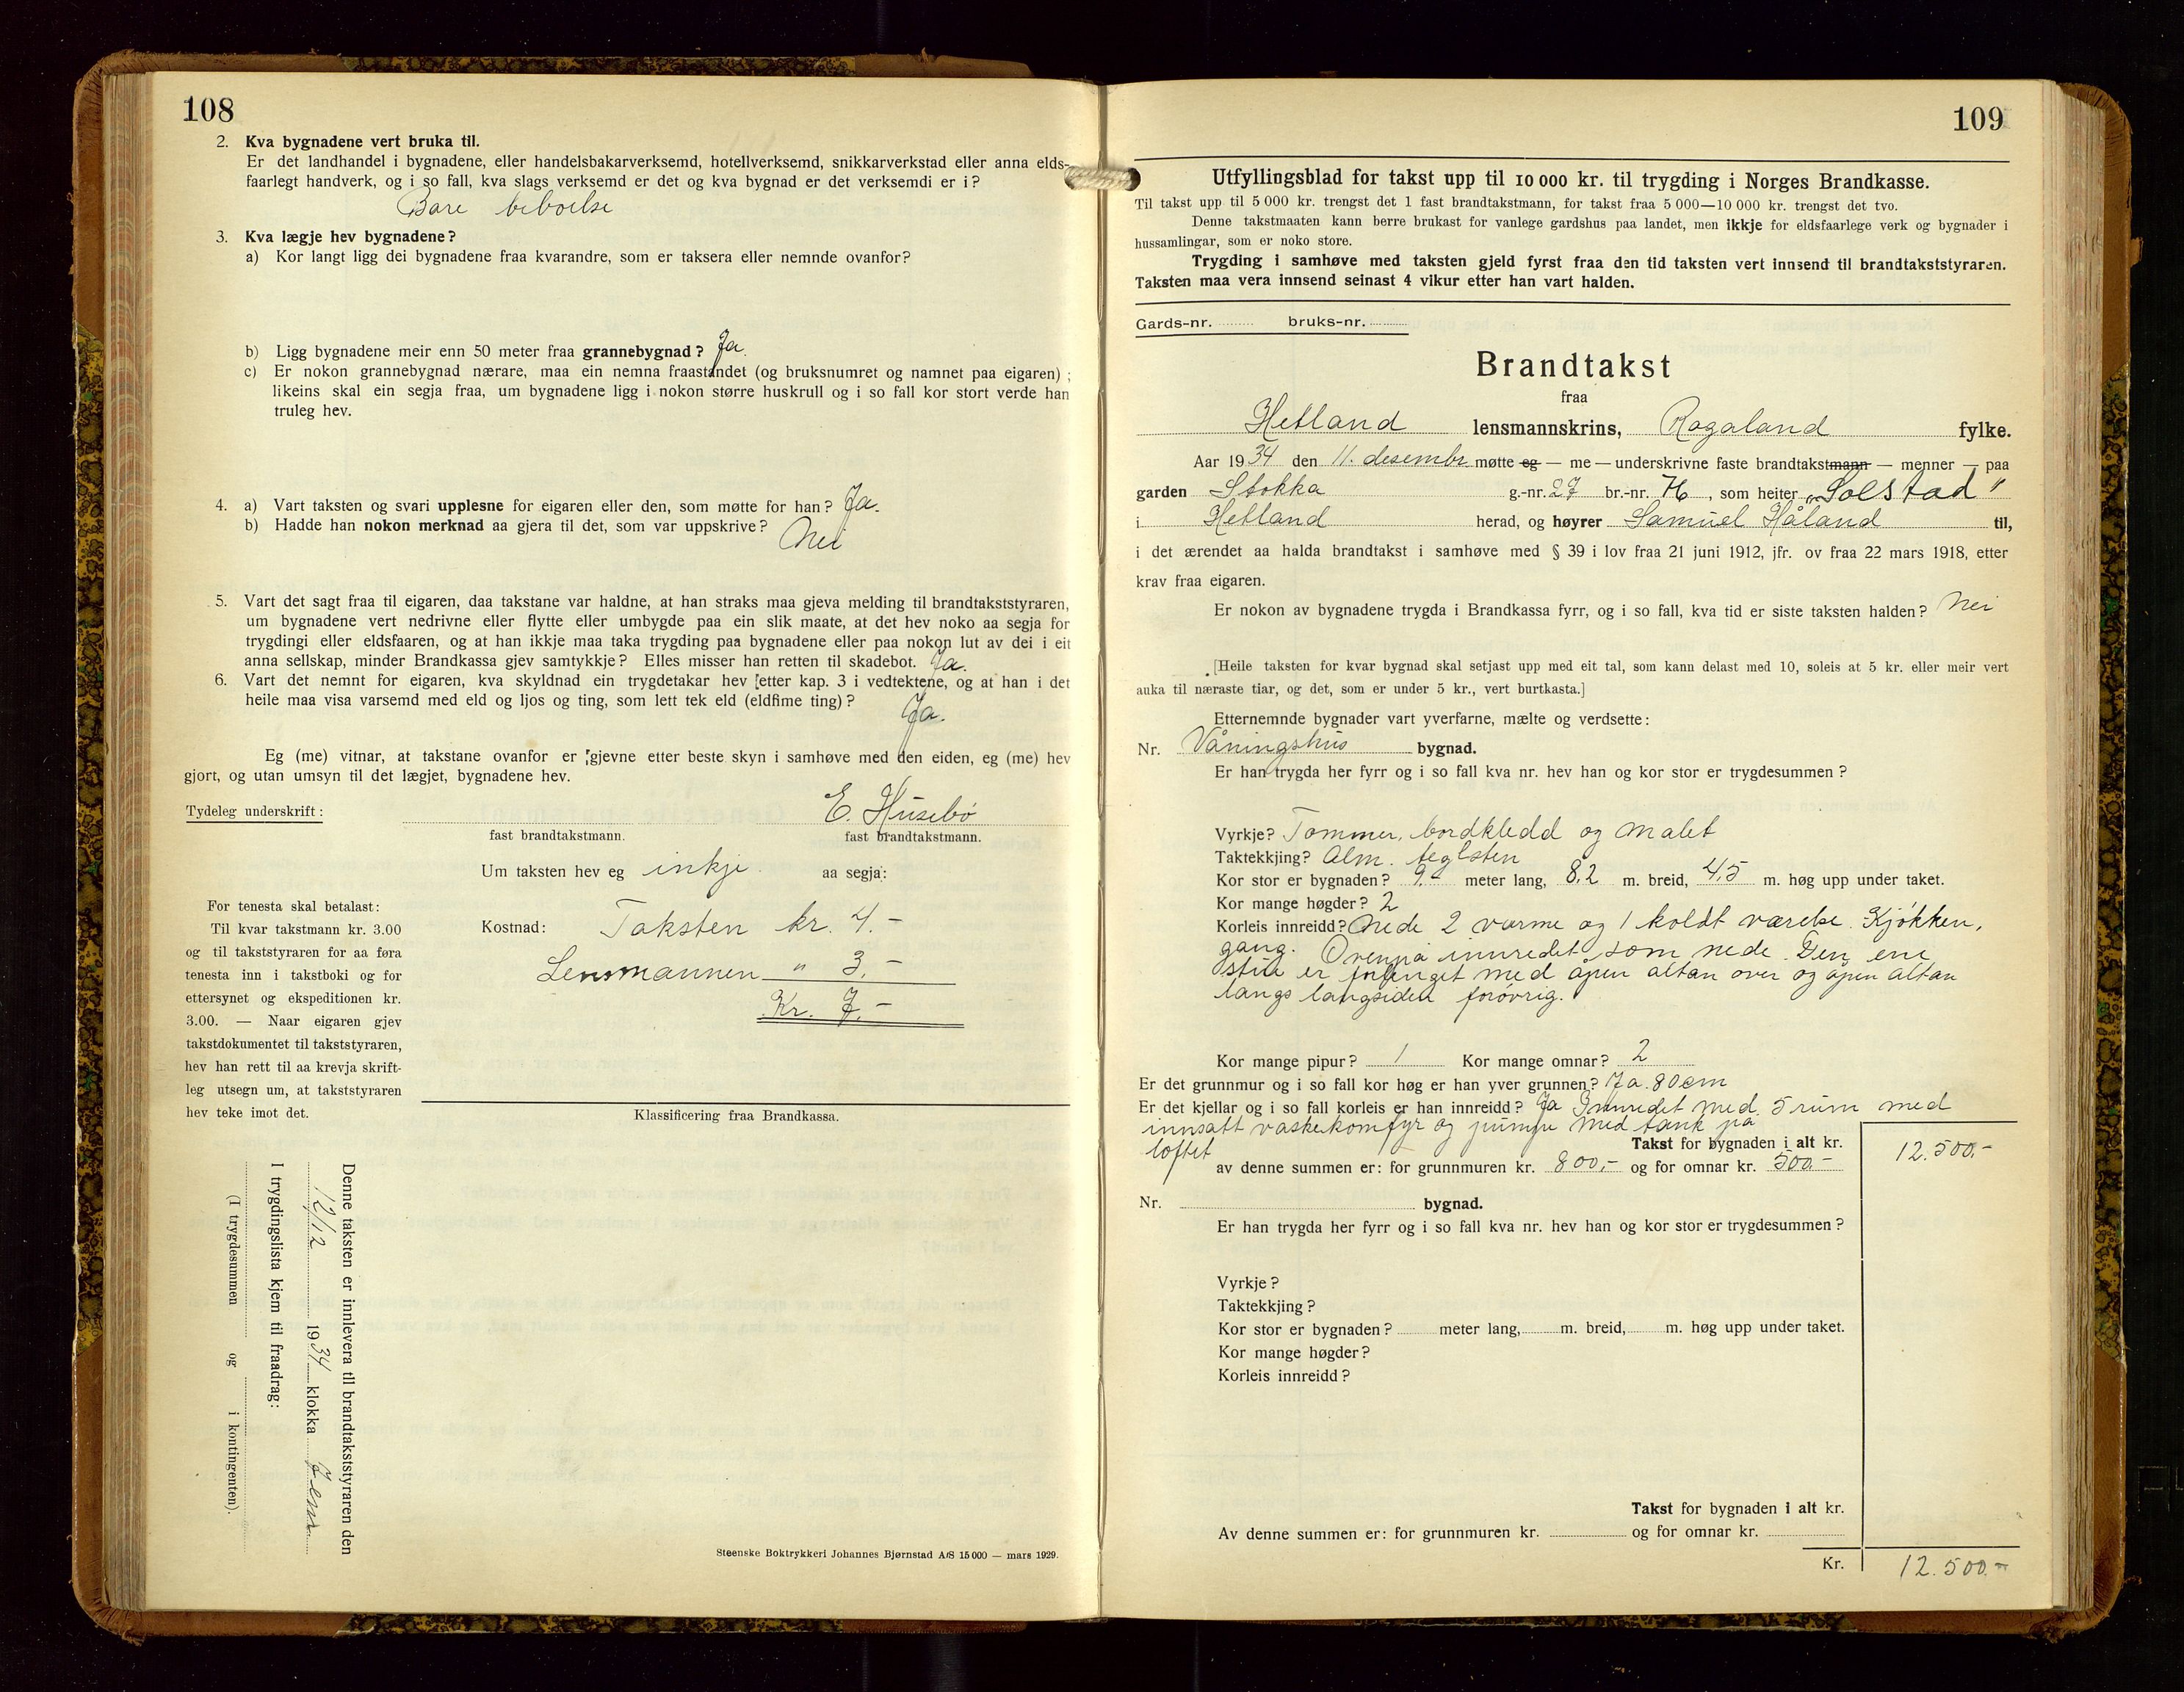 108
2. Kva bygnadene vert bruka til.
Er det landhandel i bygnadene, eller handelsbakarverksemd, hotellverksemd, snikkarverkstad eller anna elds-
faarlegt handverk, og i so fall, kva slags verksemd er det og kva bygnad er det verksemdi er i?
Bare beboelse
3. Kva lægje hev bygnadene?
a) Kor langt ligg dei bygnadene fraa kvarandre, som er taksera eller nemnde ovanfor?
b) Ligg bygnadene meir enn 50 meter fraa grannebygnad? Ja.
c) Er nokon grannebygnad nærare, maa ein nemna fraastandet (og bruksnumret og namnet paa eigaren);
likeins skal ein segja fraa, um bygnadene ligg i nokon større huskrull og i so fall kor stort verde han
truleg hev.
4. a) Vart taksten og svari upplesne for eigaren eller den, som møtte for han? Ja.
b) Hadde han nokon merknad aa gjera til det, som var uppskrive? Nei
5. Vart det sagt fraa til eigaren, daa takstane var haldne, at han straks maa gjeva melding til brandtakststyraren,
um bygnadene vert nedrivne eller flytte eller umbygde paa ein slik maate, at det hev noko aa segja for
trygdingi eller eldsfaaren, og at han ikkje maa taka trygding paa bygnadene eller paa nokon lut av dei i eit
anna sellskap, minder Brandkassa gjev samtykkje? Elles misser han retten til skadebot. Ja.
6. Vart det nemnt for eigaren, kva skyldnad ein trygdetakar hev etter kap. 3 i vedtektene, og at han i det
heile maa visa varsemd med eld og ljos og ting, som lett tek eld (eldfime ting)? Ja.
Eg (me) vitnar, at takstane ovanfor er gjevne etter beste skyn i samhøve med den eiden, eg (me) hev
gjort, og utan umsyn til det lægjet, bygnadene hev.
Tydeleg underskrift: E. Husebø
fast brandtakstmann. fast brandtakstmann.
Um taksten hev eg inkje aa segja:
For tenesta skal betalast:
Til kvar takstmann kr. 3.00
og til takststyraren for aa føra
tenesta inn i takstboki og for
ettersynet og ekspeditionen kr.
3.00. — Naar eigaren gjev
takstdokumentet til takststyraren,
hev han rett til aa krevja skrift-
leg utsegn um, at takststyraren
hev teke imot det.
Kostnad: Taksten kr. 4.-
Lensmannen " 3.-
Kr. 7.-
Klassificering fraa Brandkassa.
Denne taksten er innlevera til brandtakststyraren den
12/12 1934 klokka
I trygdingslista kjem til fraadrag:
(I trygdesummen og i kontingenten).
Steenske Boktrykkeri Johannes Bjørnstad A/S 15 000 — mars 1929.
109
Utfyllingsblad for takst upp til 10 000 kr. til trygding i Norges Brandkasse.
Til takst upp til 5 000 kr. trengst det 1 fast brandtakstmann, for takst fraa 5 000—10 000 kr. trengst det tvo.
Denne takstmaaten kann berre brukast for vanlege gardshus paa landet, men ikkje for eldsfaarlege verk og bygnader i
hussamlingar, som er noko store.
Trygding i samhøve med taksten gjeld fyrst fraa den tid taksten vert innsend til brandtakststyraren.
Taksten maa vera innsend seinast 4 vikur etter han vart halden.
Gards-nr. bruks-nr.
Brandtakst
fraa
Hetland lensmannskrins, Rogaland fylke.
Aar 1934 den 11. desembr møtte eg — me — underskrivne faste brandtakstmann — menner — paa
garden Stokka g.-nr. 27 br.-nr. 76, som heiter "Solstad"
i Hetland herad, og høyrer Samuel Håland til,
i det ærendet aa halda brandtakst i samhøve med § 39 i lov fraa 21 juni 1912, jfr. ov fraa 22 mars 1918, etter
krav fraa eigaren.
Er nokon av bygnadene trygda i Brandkassa fyrr, og i so fall, kva tid er siste taksten halden? Nei
[Heile taksten for kvar bygnad skal setjast upp med eit tal, som kann delast med 10, soleis at 5 kr. eller meir vert
auka til næraste tiar, og det, som er under 5 kr., vert burtkasta.]
Etternemnde bygnader vart yverfarne, mælte og verdsette:
Nr. Våningshus bygnad.
Er han trygda her fyrr og i so fall kva nr. hev han og kor stor er trygdesummen?
Vyrkje? Tømmer, bordkledd og malet
Taktekkjing? Alm. teglsten
Kor stor er bygnaden? 9.- meter lang, 8,2 m. breid, 4,5 m. høg upp under taket.
Kor mange høgder? 2
Korleis innreidd? Nede 2 varme og 1 koldt værelse. Kjøkken,
gang. Ovenpå innredet som nede. Den ene
stue er forlenget med åpen altan over og åpen altan
langs langsiden forøvrig.
Kor mange pipur? 1 Kor mange omnar? 2
Er det grunnmur og i so fall kor høg er han yver grunnen? Ja 80 cm
Er det kjellar og i so fall korleis er han innreidd? Ja Innredet med 5 rum med
innsatt vaskekomfyr og pumpe med tank på
loftet
Takst for bygnaden i alt kr. 12.500.-
av denne summen er: for grunnmuren kr. 800,- og for omnar kr. 500.-
Nr. bygnad.
Er han trygda her fyrr og i so fall kva nr. hev han og kor stor er trygdesummen?
Vyrkje?
Taktekkjing?
Kor stor er bygnaden? meter lang, m. breid, m. høg upp under taket.
Kor mange høgder?
Korleis innreidd?
Takst for bygnaden i alt kr.
Av denne summen er: for grunnmuren kr. og for omnar kr.
Kr. 12.500.-